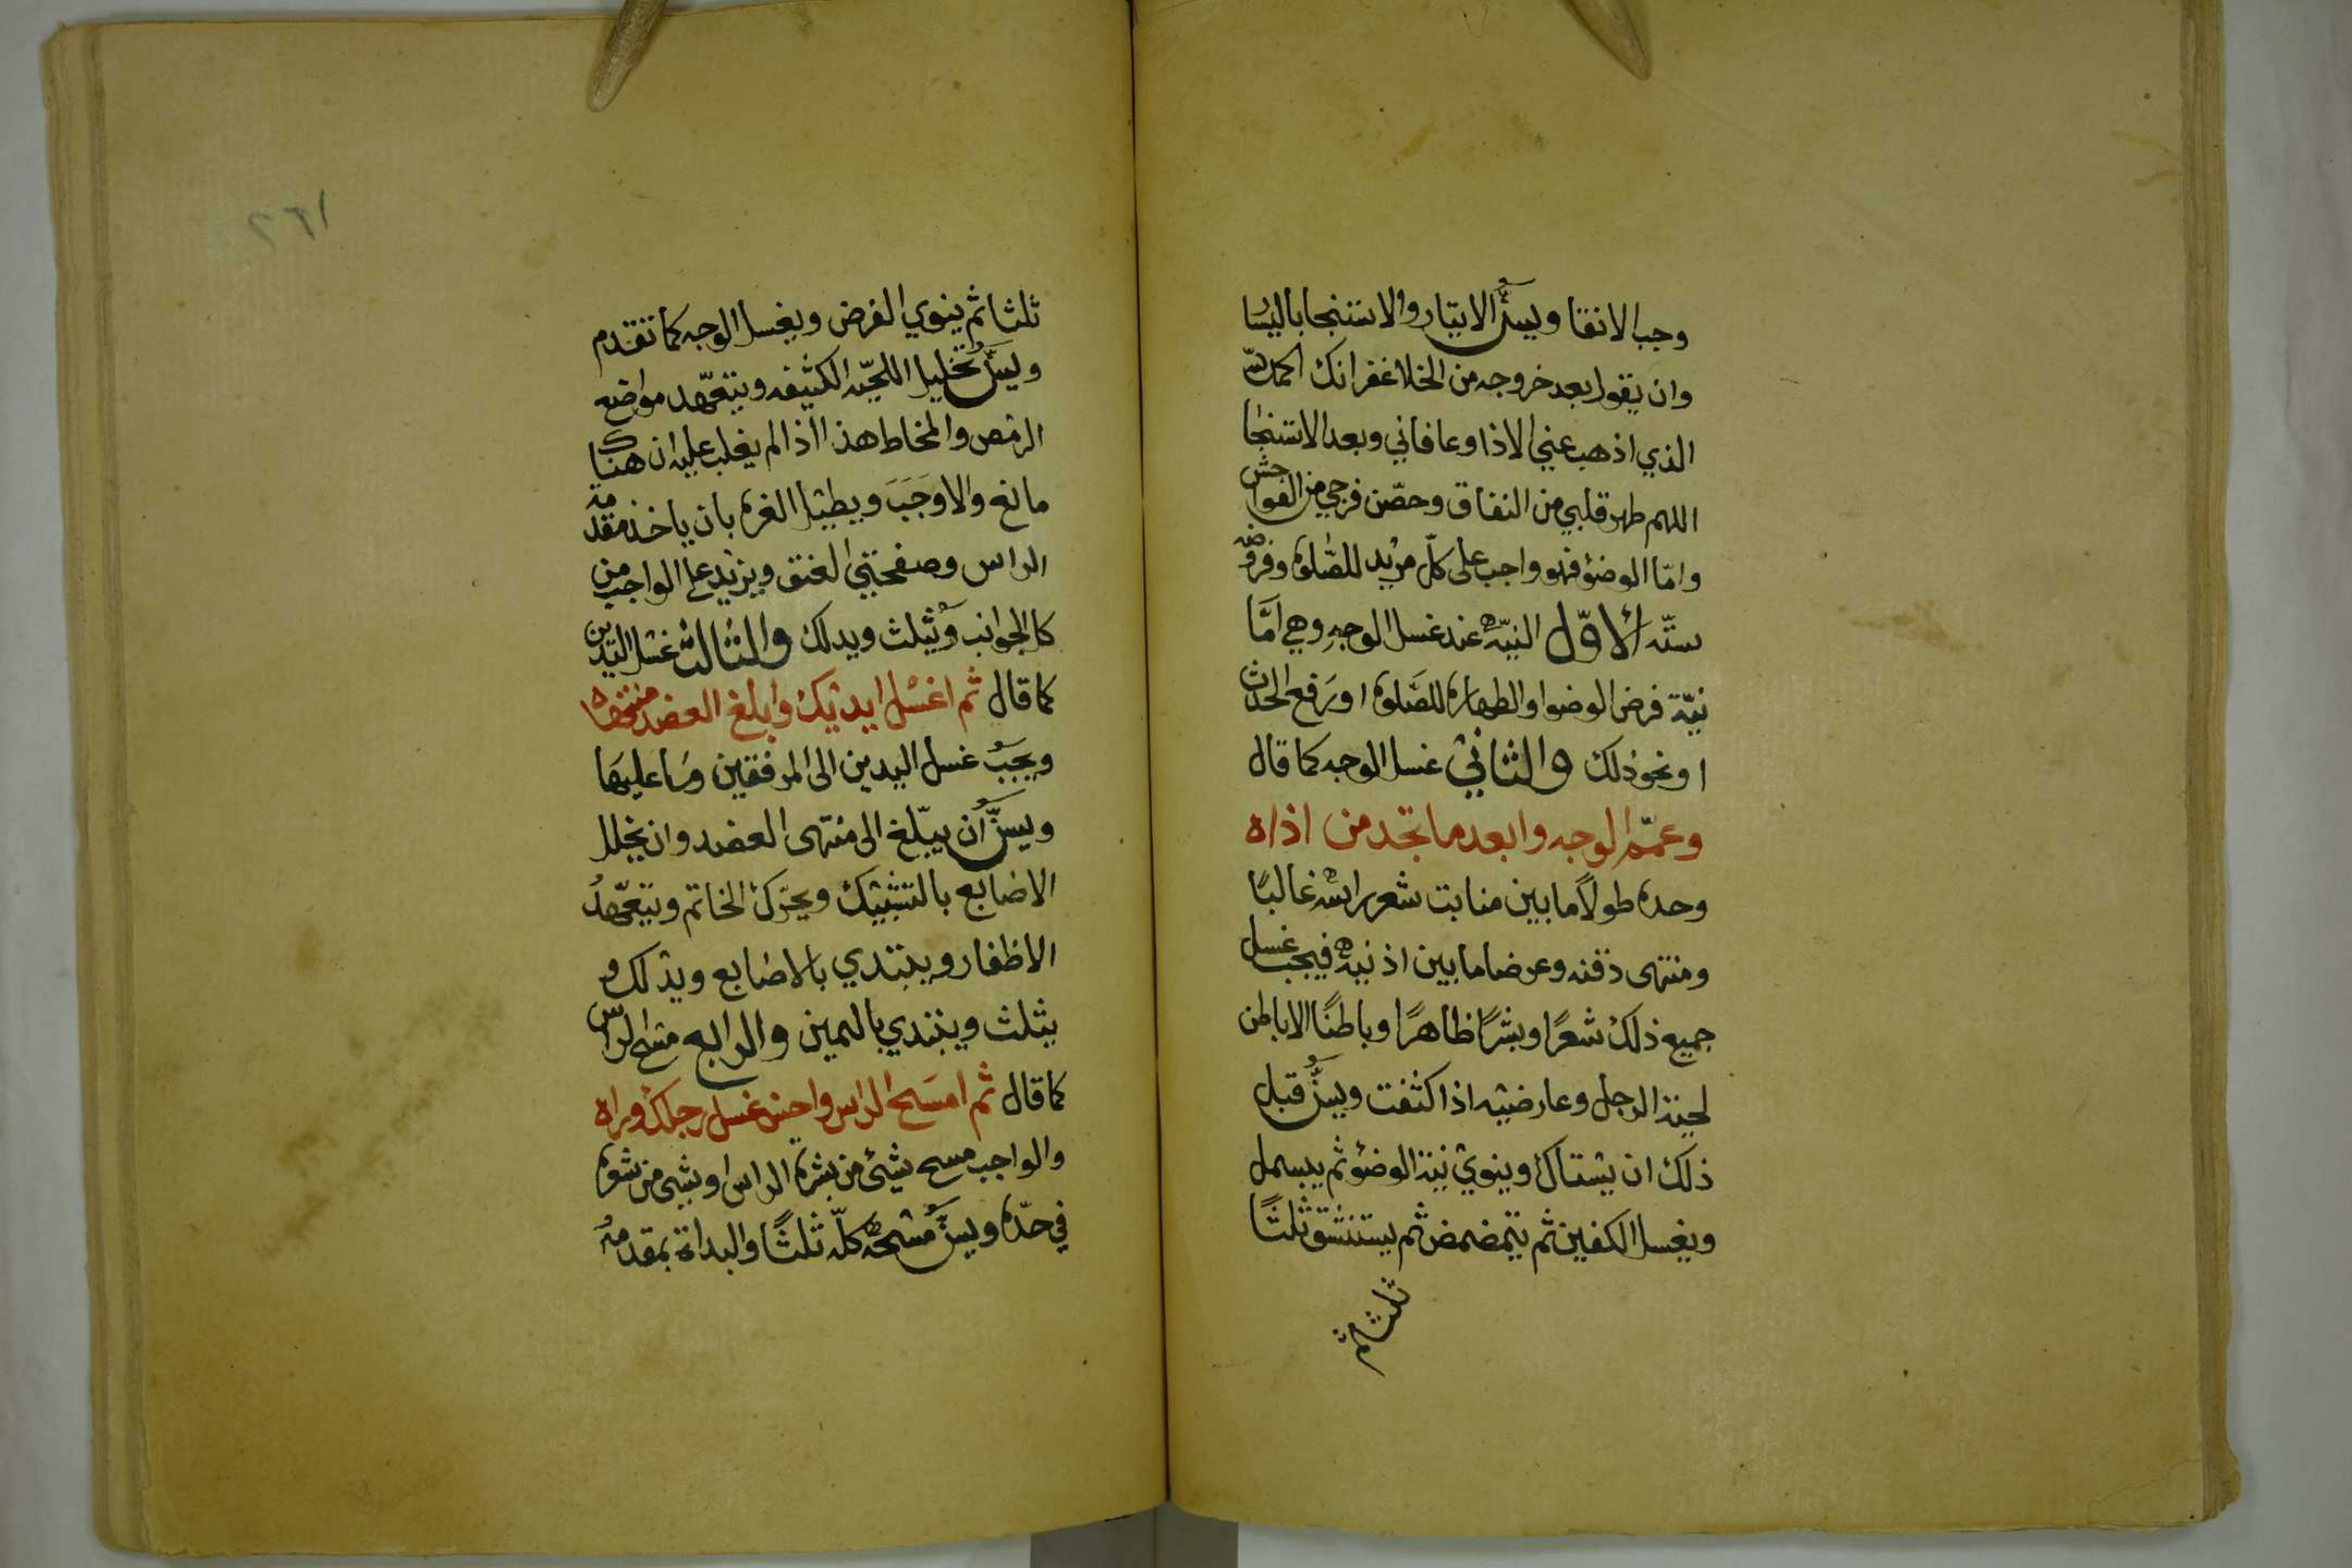 وجب الانقا ويسنُّ الايتار والاستنجا باليسا
وان يقول بعد خروجه من الخلا غفرانك الحمد لله
الذي اذهب عني الاذا وعافاني وبعد الاستنجا
اللهم طهر قلبي من النفاق وحصّن فرجي من الفواحش
وامّا الوضؤ فهو واجب على كلّ مريد للصّلوة وفروضه
ستّه الاوّل النيّه عند غسل الوجه وهي امَّا
نيّة فرض الوضوا والطهارة للصَلوة او رَفع الحدث
او نحو ذلك والثاني غسل الوجه كما قال
وعمّم الوجه وابعد ما تجد من اذاه
وحده طولاً ما بين منابت شعر راسه غالبًا
ومنتهى ذقنه وعرضا ما بين اذنيه فيجب غسل
جميع ذلك شعرًا وبشرًا ظاهرًا وباطنًا الا باطن
لحية الرجل وعارضيه اذا كثفت ويسنُّ قبل
ذلك ان يستاك وينوي نية الوضؤ ثم يبسمل
ويغسل الكفين ثم يتمضمض ثم يستنشق ثلثًا
ثلثا ثم
١٦٢
ثلثا ثم ينوي الفرض ويغسل الوجه كما تقدم
ويسنُّ تخليل اللحيّه الكثيفه ويتعّهد مواضع
الرمص والمخاط هذا اذا لم يغلب عليه ان هناك
مانع والا وجَبَ ويطيل الغره بان ياخذ مقدمة
الراس وصفحتي العنق ويزيد على الواجب من
كل الجوانب وَيُثلث ويدلك والثالث غسل اليدين
كما قال ثم اغسل ايديك وابلغ العضد
ويجبُ غسل اليدين الى المرفقين وما عليها
ويسنُّ ان يبّلغ الى منتهى العضد وان يخلل
الاصابع بالتشبيك ويحرّك الخاتم ويتعّهدُ
الاظفار ويبتدي بالاصابع ويدلك و
يثلث ويبتدي باليمين والرابع مسح الراس
كما قال ثم امسَح الراس واحسن غسل رجلك وراه
والواجب مسح شيئ من بشرة الراس او شي من شعره
في حدّه ويسنُّ مسحه كلّه ثلثًا والبداة بمقدمه